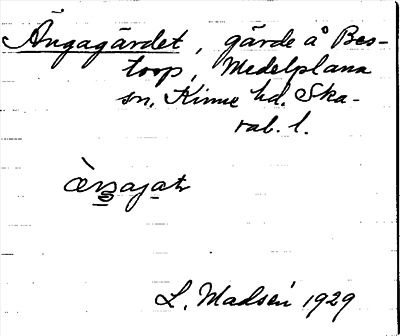 Ängagärdet, gärde å Bes-
torp, Medelplana
sn. Kinne hd. Ska-
rab. l.
L. Madsén 1929